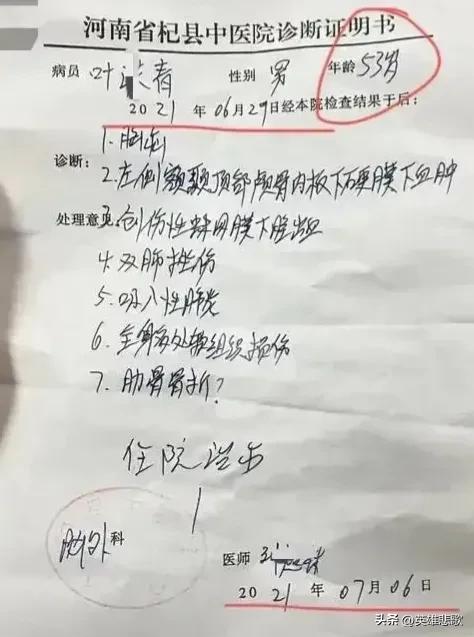 河南省杞县中医院诊断证明书
病员 叶 春 性别 男 年龄 53岁
2021年06月29日经本院检查结果于后:
诊断:
1. 脑疝
2. 左侧额颞顶部颅骨内板下硬膜下血肿
处理意见:
3. 创伤性蛛网膜下腔出血
4. 双肺挫伤
5. 吸入性肺炎
6. 全身多处软组织损伤
7. 肋骨骨折?
住院
脑外科
医师
2021年07月06日
头条 @英雄悲歌